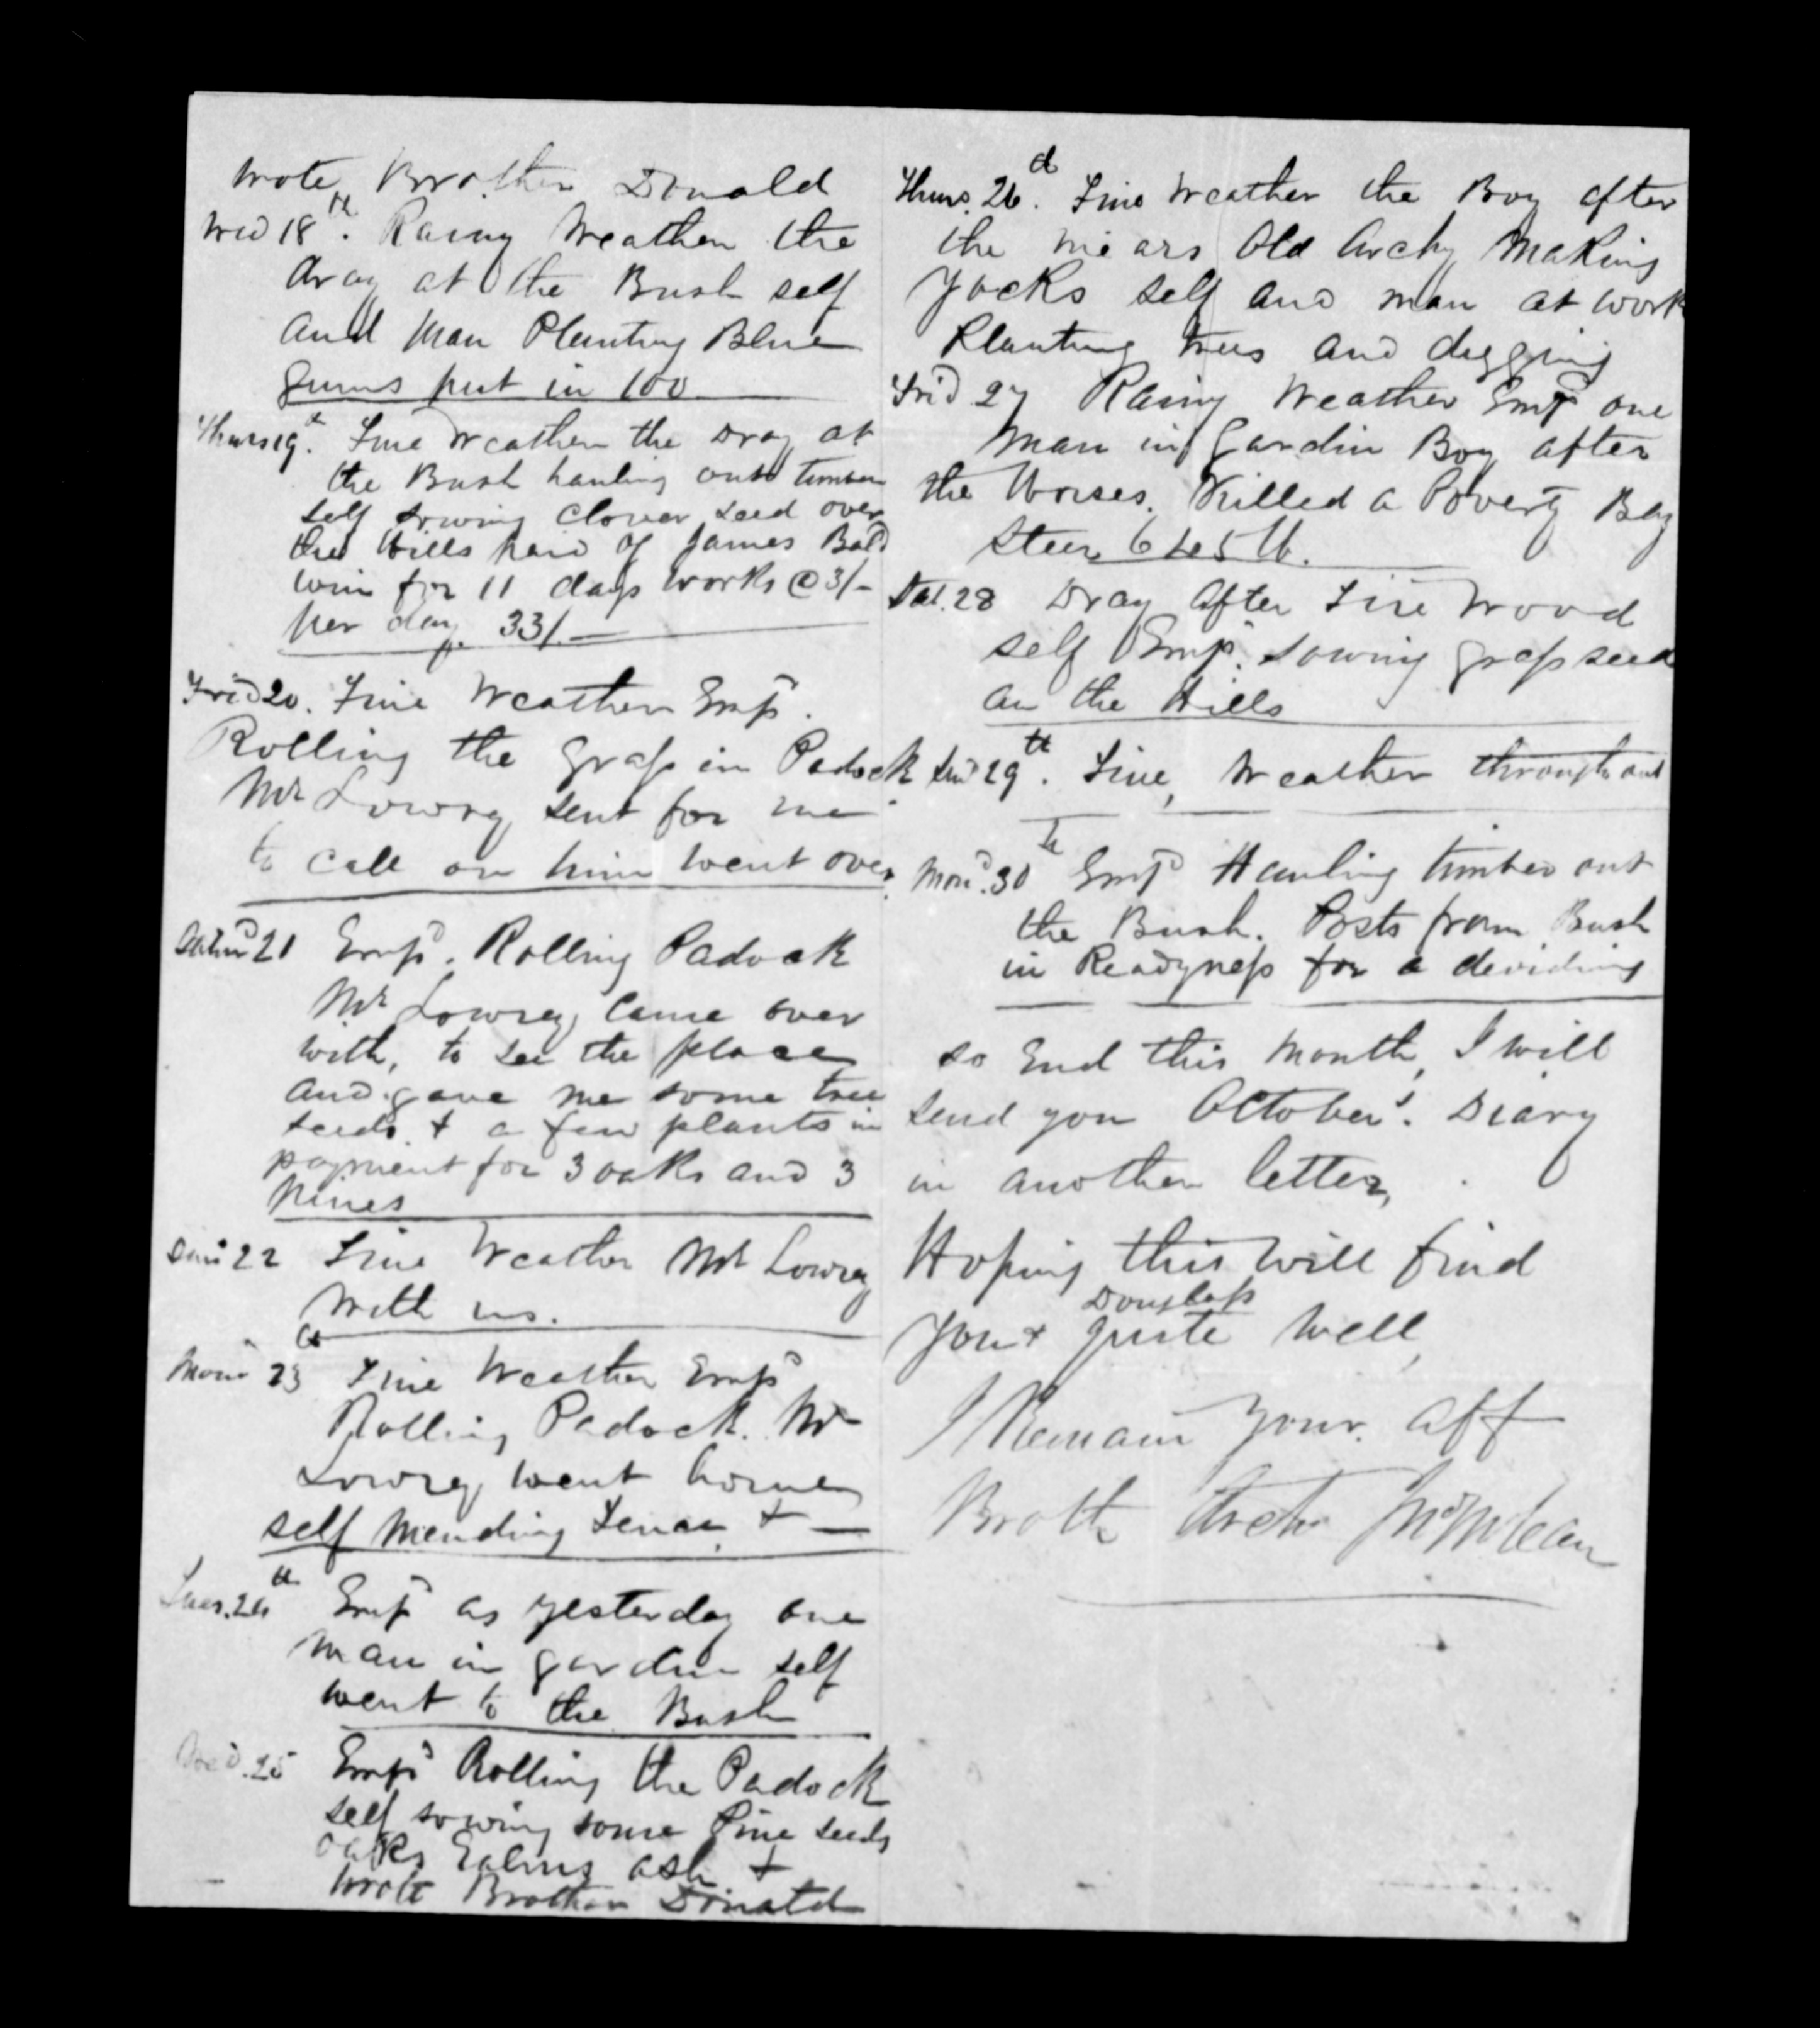 wrote Brother Donald
Wed 18th. Rainy Weather the
dray at the Bush self
and Man Planting Blue
Gums put in 100
Thurs 19th. Fine Weather the Dray at
the Bush hauling out timber
self sowing Clover seed over
the Hills paid of James Bald
win for 11 days works @ 3/-
per day. 33/-
Frid 20. Fine Weather Empd.
Rolling the Grass in Padock
Mr Lowry sent for me
to call on him went over
Saturd 21 Empd. Rolling Padock
Mr Lowry came over
with, to see the place
and gave me some tree
seeds. & a few plants in
payment for 3 oaks and 3
pines
Sun 22 Fine Weather Mr Lowry
With us.
Mon 23 Fine Weather Empd
Rolling Padock. Mr
Lowry went home
self mending Fence. &
Tues. 24th Empd as yesterday one
man in garden self
went to the Bush
Wed. 25 Empd Rolling the Padock
self sowing some Pine seeds
oaks Ealms ash &
wrote Brother Donald
Thurs. 26d. Fine Weather the Boy after
the mears Old Archy Making
Yocks self and man at work
Planting trees and digging
Frid 27 Rainy Weather Empd one
Man in Gardin Boy after
the Horses. Killed a Poverty Bay
Steer 645 lb.
Sat. 28 Dray after Fire Wood
self Empd. sowing grass seed
on the Hills
Sund 29th. Fine, Weather throughout
Mond. 30th Empd Hauling timber out
the Bush. Posts from Bush
in Readyness for a deviding
so End this Month, I will
send you October's. Diary
in another letter,
Hoping this will find
Douglass
you & quite well,
I Remain your. aff
Broth Archd McLean